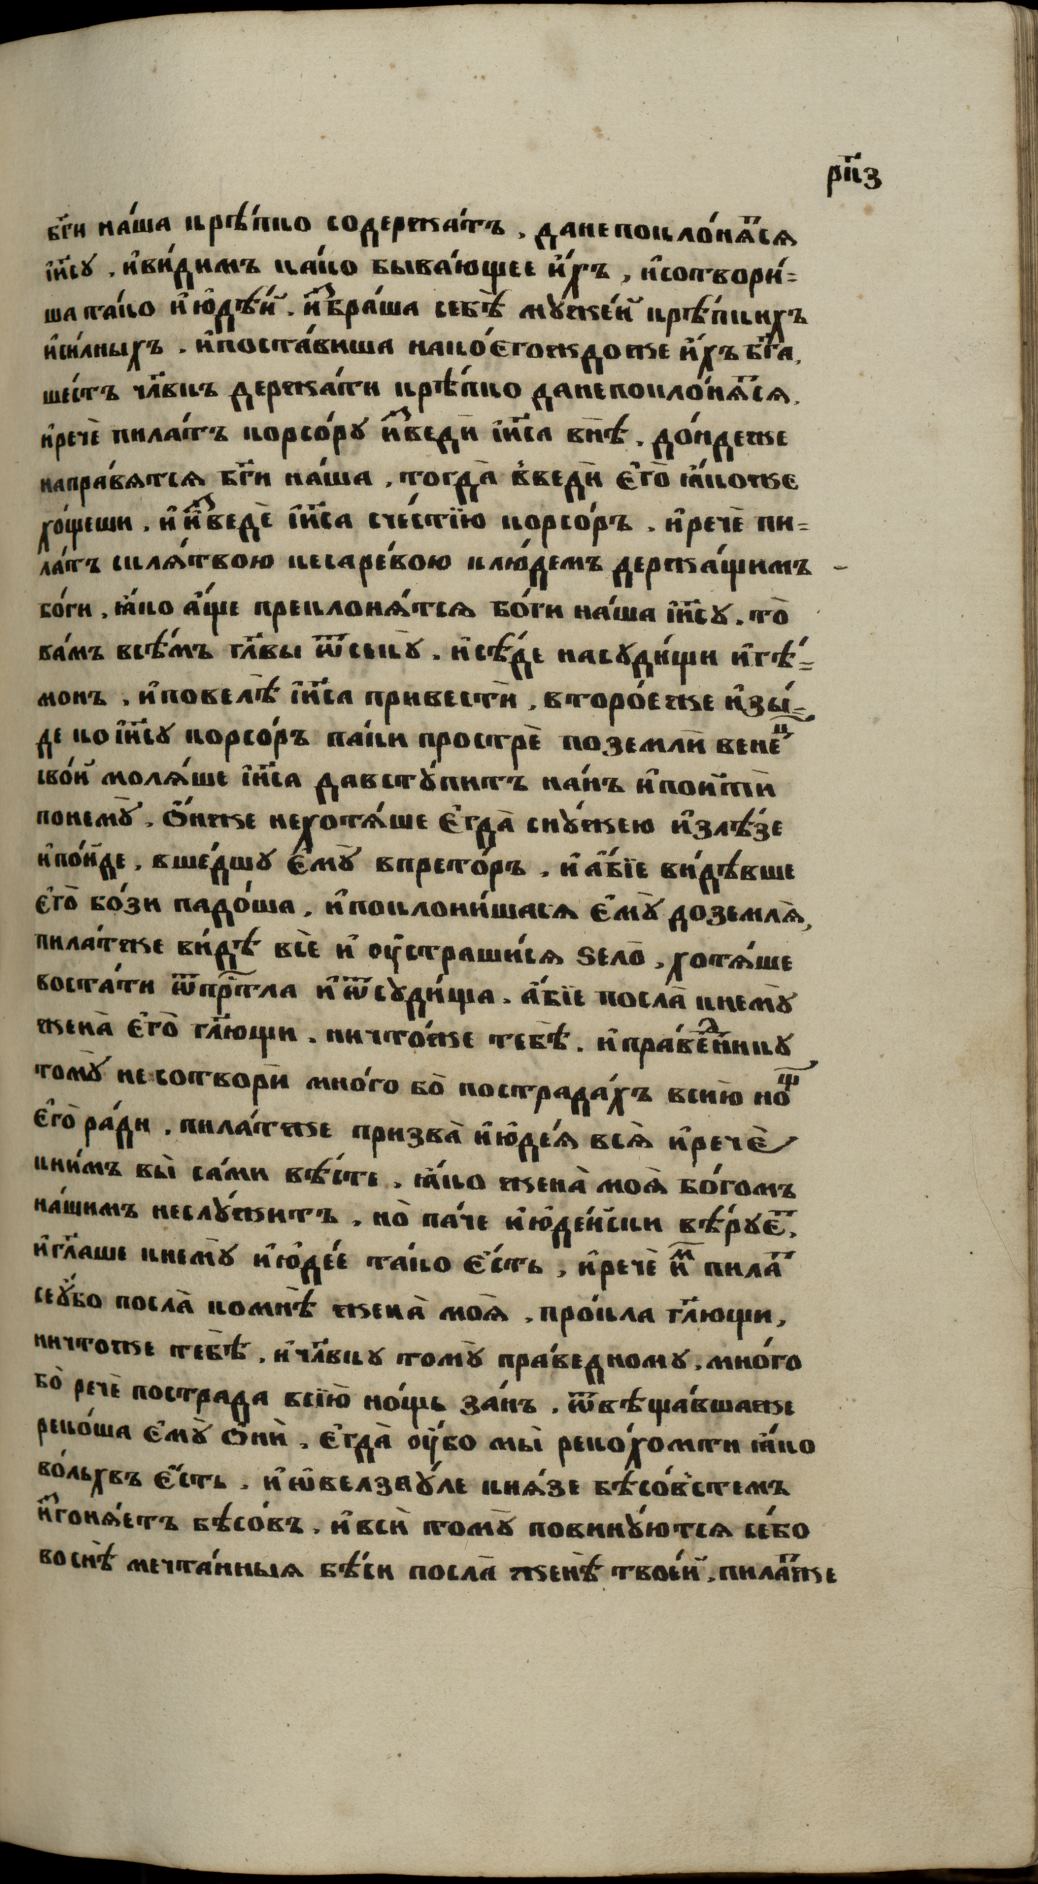 рп҃з
бг҃и на́ша крѣ́пко содержа́тъ, да не поклоня́тⷭ҇ся
і҆и҃су, и҆ ви́димъ ка́ко быва́ющее и҆́хъ, и҆ сотвори́-
ша та́ко и҆ю҆дѣ́й. и҆ꙁбра́ша себѣ̀ му́жей крѣ́пкихъ
и҆ си́лныхъ. и҆ поста́виша коего́ждо же и҆́хъ бг҃а,
ше́сть чл҃вкъ держа́ти крѣ́пко да не поклоня́тся.
и҆ речѐ пила́тъ корсо́ру и҆ꙁведѝ і҆и҃са внѣ̀, до́ндеже
напра́вятся бг҃и на́ша, тогда̀ введѝ є҆го̀ ꙗ҆́коже
хо́щеши. и҆ и҆ꙁведѐ і҆и҃са с че́стїю корсо́ръ. и҆ речѐ пи-
ла́тъ скля́твою кесаре́вою к лю́демъ держа́щимъ
бо́ги, ꙗ҆́ко а҆́ще преклоня́тся бо́ги на́ша і҆и҃су. то̀
ва́мъ всѣ́мъ гл҃вы ѿсѣку̀. и҆ сѣ́де на суди́щи и҆гѣ́-
монъ, и҆ повелѣ̀ і҆и҃са привестѝ, второ́е же и҆зы́-
де ко і҆и҃су корсо́ръ паки прострѐ по землѝ венеⷰ҇
сво́й моля́ше і҆и҃са да вступитъ на́нь и҆ поитѝ
по нему̀. ѻ҆́нже не хотя́ше є҆гда̀ с нужею и҆злѣ́зе
и҆ по́йде, вше́дшу є҆му̀ в прето́ръ, и҆ а҆́бїе ви́дѣвше
є҆го̀ бо́зи падо́ша, и҆ поклони́шася є҆му̀ до земля̀,
пила́тже ви́дѣ всѐ и҆ ᲂу҆страши́ся ѕело̀, хотя́ше
воста́ти ѿ прⷭ҇тла и҆ ѿ суди́ща. а҆́бїе посла̀ к нему̀
жена̀ є҆го̀ гл҃ющи. ничто́же тебѣ̀. и҆ пра́веⷣнику
тому̀ не сотворѝ мно́го бо̀ пострада́хъ всю̀ ноⷳ҇
є҆го̀ ра́ди. пила́тже призва̀ и҆ю҆де́я вся̀ и҆ речѐ
к ни́мъ вы̀ са́ми вѣ́сте, ꙗ҆́ко жена̀ моя̀ бо́гомъ
на́шимъ не слу́житъ, но̀ па́че и҆ю҆де́йски вѣ́руеⷮ,
и҆ гл҃аше к нему̀ и҆ю҆де́е та́ко є҆́сть, и҆ речѐ и҆ⷨ пилаⷮ
се ᲂу҆́бо посла̀ ко мнѣ̀ жена̀ моя̀, про́кла гл҃ющи,
ничтоже тебѣ̀, и҆ чл҃вку тому̀ пра́ведному, мно́го
бо̀ речѐ пострада всю̀ но́щь за́нь. ѿвѣща́вшаже
реко́ша є҆му̀ ѻ҆нѝ, є҆гда̀ ᲂу҆́бо мы̀ реко́хомти ꙗ҆́ко
во́лхвъ є҆́сть, и҆ ѡ҆ велзау́ле кня́зе бѣсо́встемъ
и҆ꙁгоня́етъ бѣсо́въ, и҆ всѝ тому̀ повину́ются се́бо
во снѣ̀ мечта́нныя бѣ́си посла̀ женѣ̀ твое́й. пила́тже